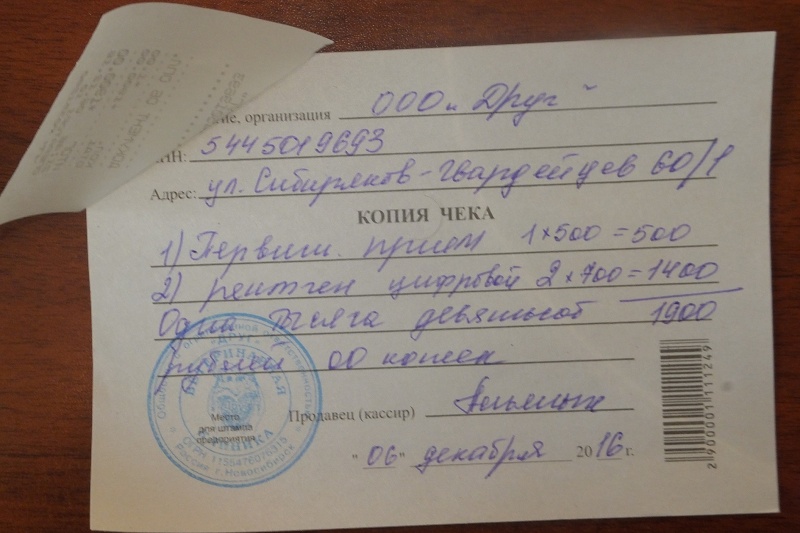 ие, организация ООО „Друг"
ИНН: 5445019693
Адрес: ул. Сибиряков-Гвардейцев 60/1
КОПИЯ ЧЕКА
1) Первичн. прием 1×500=500
2) рентген цифровой 2×700=1400
Одна тысяча девятьсот 1900
рублей 00 копеек
Продавец (кассир)
"06" декабря 2016 г.
Место
для штампа
предприятия
«ДРУГ»
ВЕТЕРИНАРНАЯ
КЛИНИКА
Россия, г. Новосибирск
2900001111249